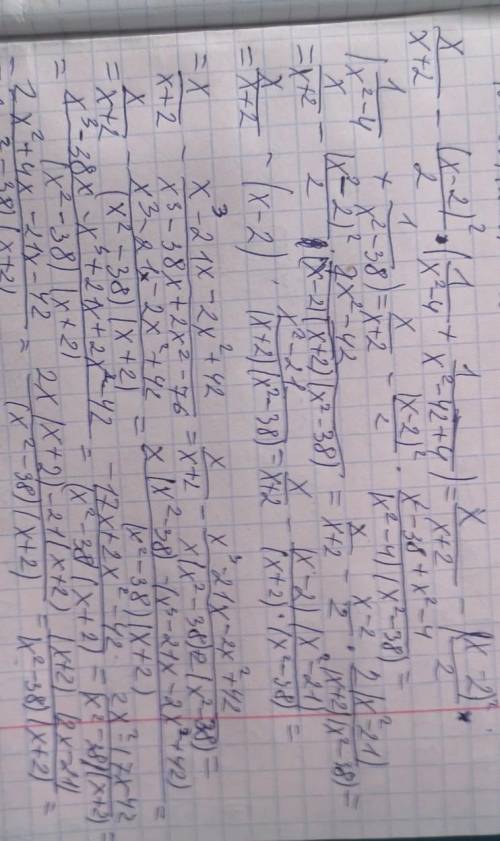 x/(x+2) - (x-2)²/2 · (1/(x²-4) + 1/(x²-42+4)) = x/(x+2) - (x-2)²/2 ·
(1/(x²-4) + 1/(x²-38)) = x/(x+2) - (x-2)²/2 · (x²-38+x²-4)/((x²-4)(x²-38)) =
= x/(x+2) - (x-2)²/2 · (2x²-42)/((x-2)(x+2)(x²-38)) = x/(x+2) - (x-2)/2 · 2(x²-21)/((x+2)(x²-38)) =
= x/(x+2) - (x-2) · (x²-21)/((x+2)(x²-38)) = x/(x+2) - (x-2)(x²-21)/((x+2)·(x²-38)) =
= x/(x+2) - (x³-21x-2x²+42)/(x³-38x+2x²-76) = x/(x+2) - (x³-21x-2x²+42)/(x(x²-38)2(x²-38)) =
= x/(x+2) - (x³-21x-2x²+42)/((x²-38)(x+2)) = (x(x²-38)-(x³-21x-2x²+42))/((x²-38)(x+2)) =
= (x³-38x-x³+21x+2x²-42)/((x²-38)(x+2)) = (-17x+2x²-42)/((x²-38)(x+2)) = (2x²-17x-42)/((x²-38)(x+2)) =
= (2x²+4x-21x-42)/((x²-38)(x+2)) = (2x(x+2)-21(x+2))/((x²-38)(x+2)) = (x+2)(2x-21)/((x²-38)(x+2)) =